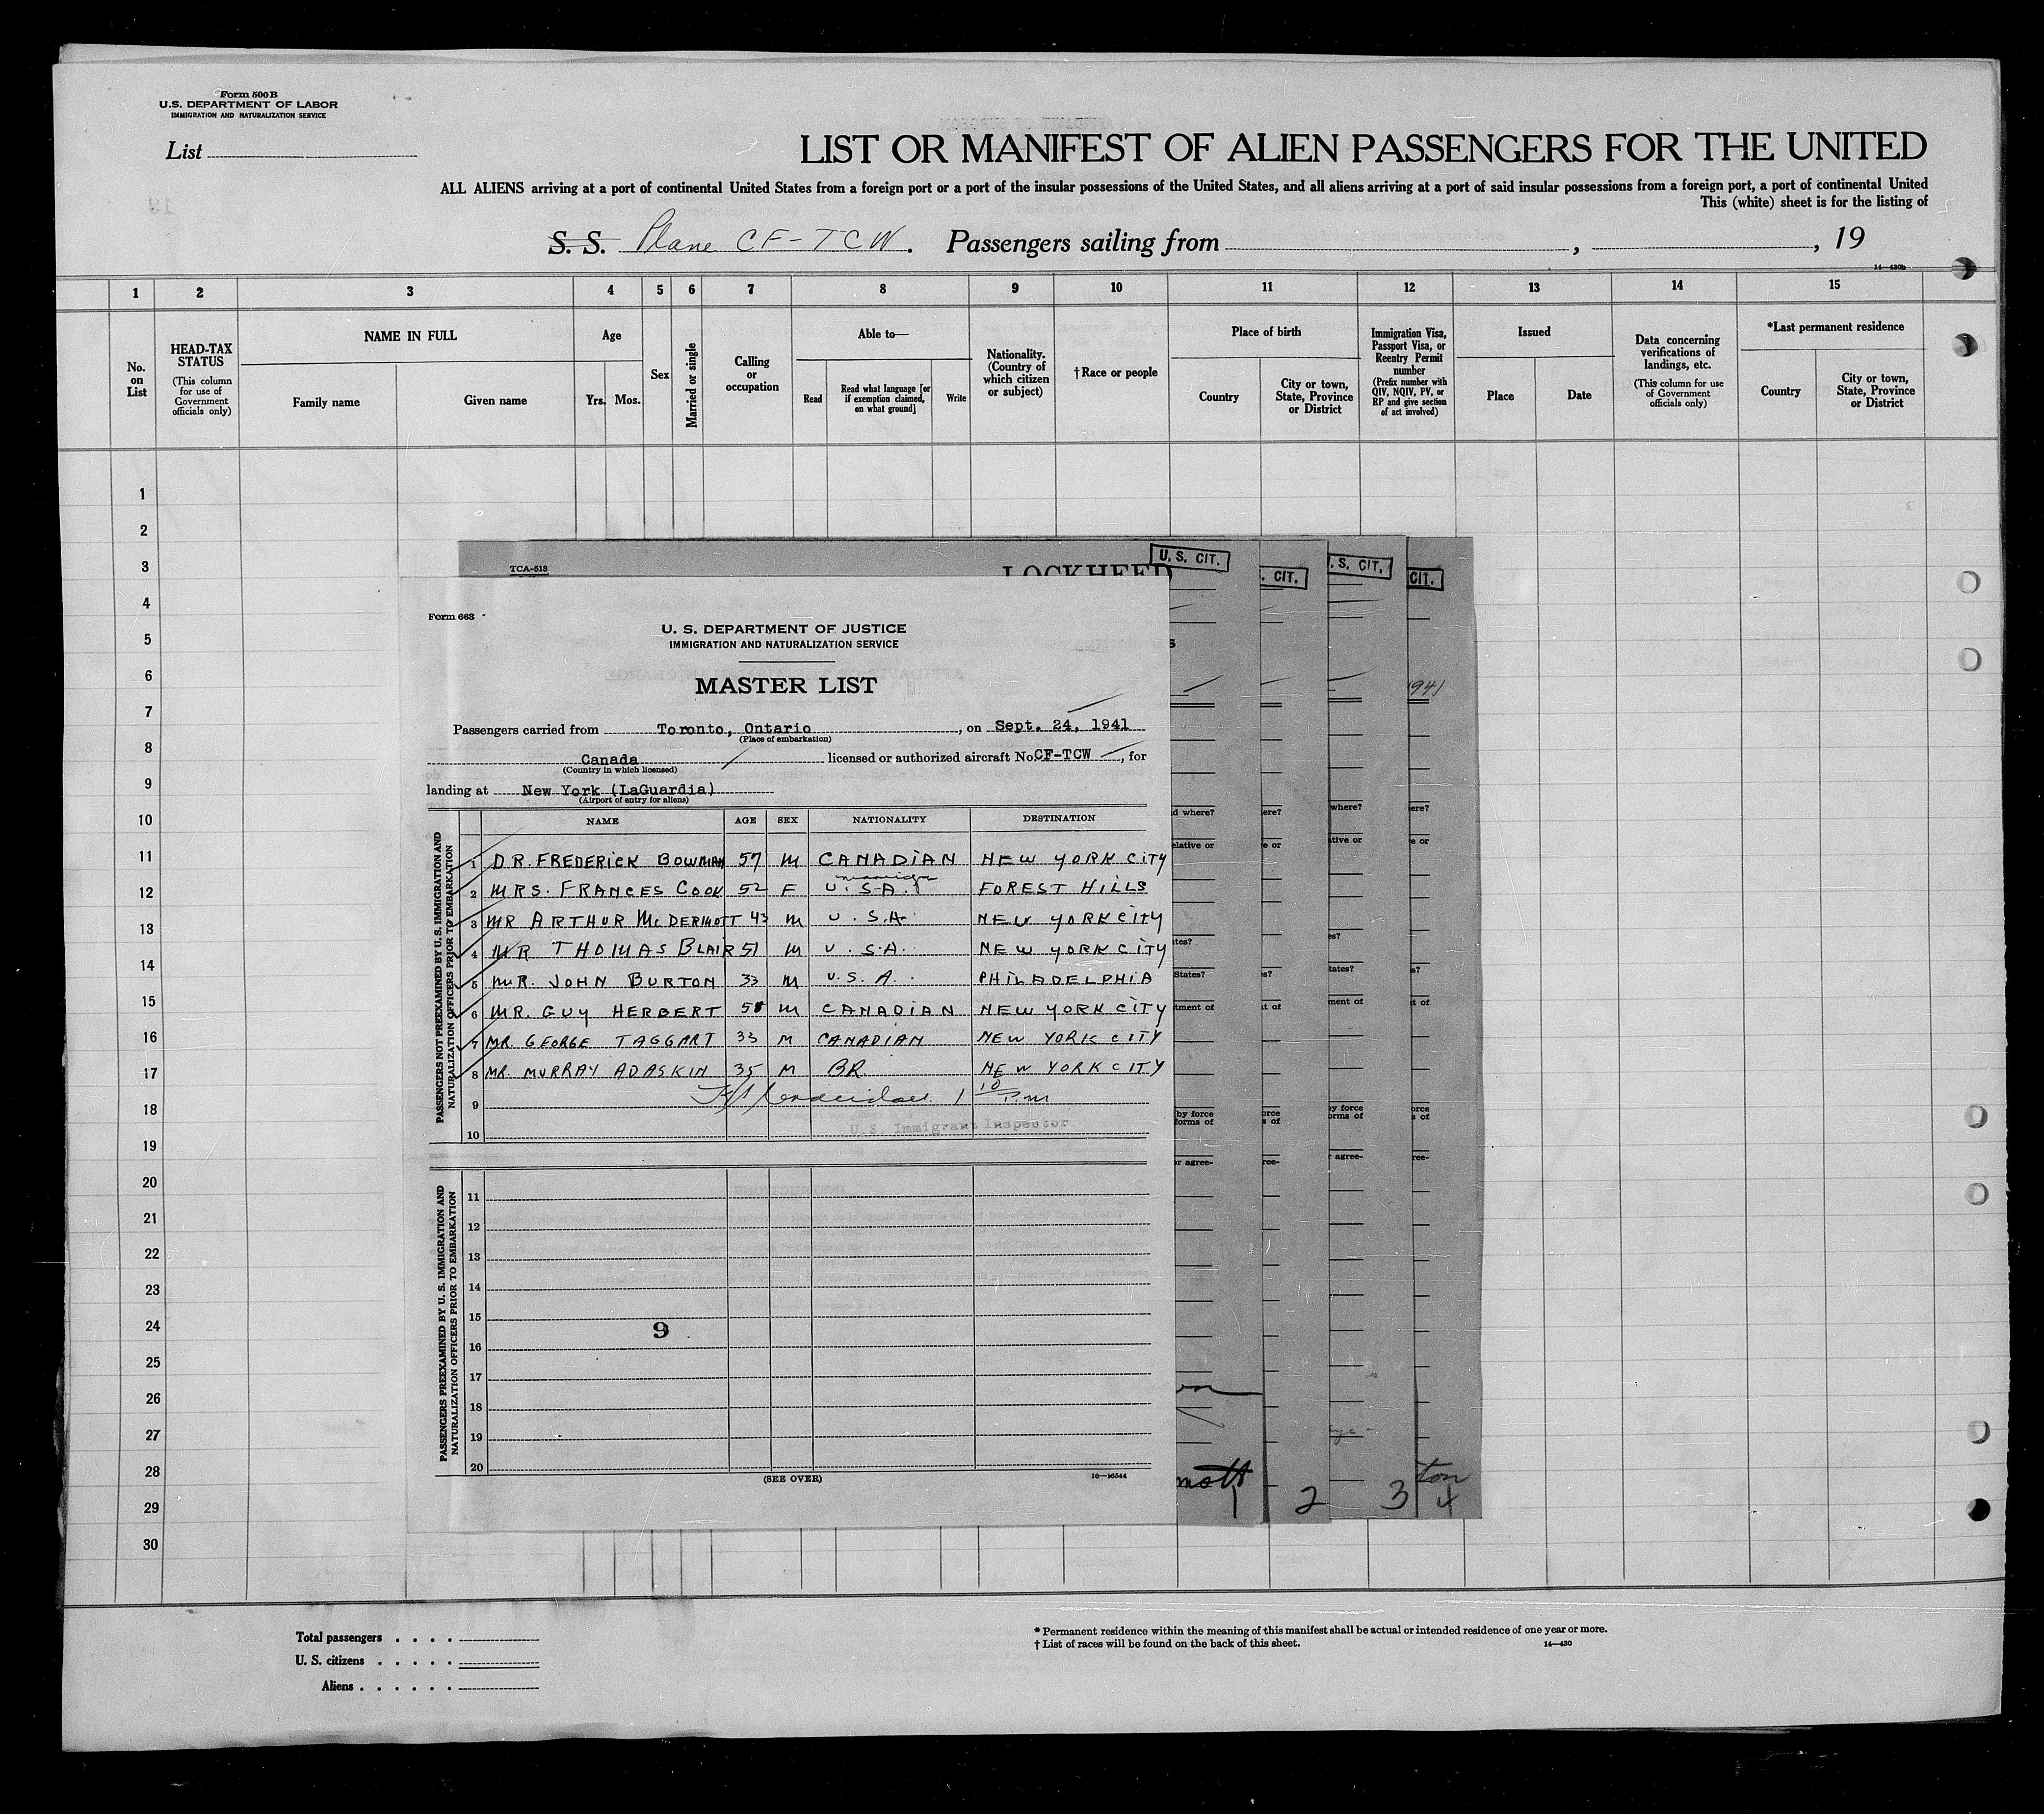 Form 500B
U.S. DEPARTMENT OF LABOR
IMMIGRATION AND NATURALIZATION SERVICE
List
LIST OR MANIFEST OF ALIEN PASSENGERS FOR THE UNITED
ALL ALIENS arriving at a port of continental United States from a foreign port or a port of the insular possessions of the United States, and all aliens arriving at a port of said insular possessions from a foreign port, a port of continental United
This (white) sheet is for the listing of
S. S. Plane CF-TCW. Passengers sailing from , , 19
14—430b
1 2 3 4 5 6 7 8 9 10 11 12 13 14 15
No. on List
HEAD-TAX STATUS
(This column for use of Government officials only)
NAME IN FULL
Family name
Given name
Age
Yrs. Mos.
Sex
Married or single
Calling or occupation
Able to—
Read
Read what language [or if exemption claimed, on what ground]
Write
Nationality. (Country of which citizen or subject)
†Race or people
Place of birth
Country
City or town, State, Province or District
Immigration Visa, Passport Visa, or Reentry Permit number
(Prefix number with QIV, NQIV, PV, or RP and give section of act involved)
Issued
Place
Date
Data concerning verifications of landings, etc.
(This column for use of Government officials only)
*Last permanent residence
Country
City or town, State, Province or District
1
2
3
4
5
6
7
8
9
10
11
12
13
14
15
16
17
18
19
20
21
22
23
24
25
26
27
28
29
30
TCA-518
LOCKHEED
U. S. CIT.
. CIT.
. S. CIT.
CIT.
Form 663
U. S. DEPARTMENT OF JUSTICE
IMMIGRATION AND NATURALIZATION SERVICE
MASTER LIST
Passengers carried from Toronto, Ontario, on Sept. 24, 1941
(Place of embarkation)
Canada licensed or authorized aircraft No. CF-TCW, for
(Country in which licensed)
landing at New York (LaGuardia)
(Airport of entry for aliens)
NAME AGE SEX NATIONALITY DESTINATION
PASSENGERS NOT PREEXAMINED BY U. S. IMMIGRATION AND NATURALIZATION OFFICERS PRIOR TO EMBARKATION
1 DR. FREDERICK BOWMAN 57 M CANADIAN NEW YORK CITY
2 MRS. FRANCES COOK 52 F U.S.A. FOREST HILLS
3 MR ARTHUR McDERMOTT 43 M U.S.A. NEW YORK CITY
4 MR THOMAS BLAIR 51 M U.S.A. NEW YORK CITY
5 MR. JOHN BURTON 33 M U.S.A. PHILADELPHIA
6 MR. GUY HERBERT 51 M CANADIAN NEW YORK CITY
7 MR. GEORGE TAGGART 33 M CANADIAN NEW YORK CITY
8 MR. MURRAY ADASKIN 35 M BR. NEW YORK CITY
9 10 P.m
10 U.S. Immigrant Inspector
PASSENGERS PREEXAMINED BY U. S. IMMIGRATION AND NATURALIZATION OFFICERS PRIOR TO EMBARKATION
11
12
13
14
15
9
16
17
18
19
20
(SEE OVER)
16—16544
941
d where? ere? where? ere?
elative or e or ative or e or
tes? s?
States? s? tates? s?
tment of t of ment of t of
by force orce by force orce
forms of s of orms of s of
r agree- ree- r agree- ree-
mott ton
1 2 3 4
Total passengers
U. S. citizens
Aliens
* Permanent residence within the meaning of this manifest shall be actual or intended residence of one year or more.
† List of races will be found on the back of this sheet.
14—430